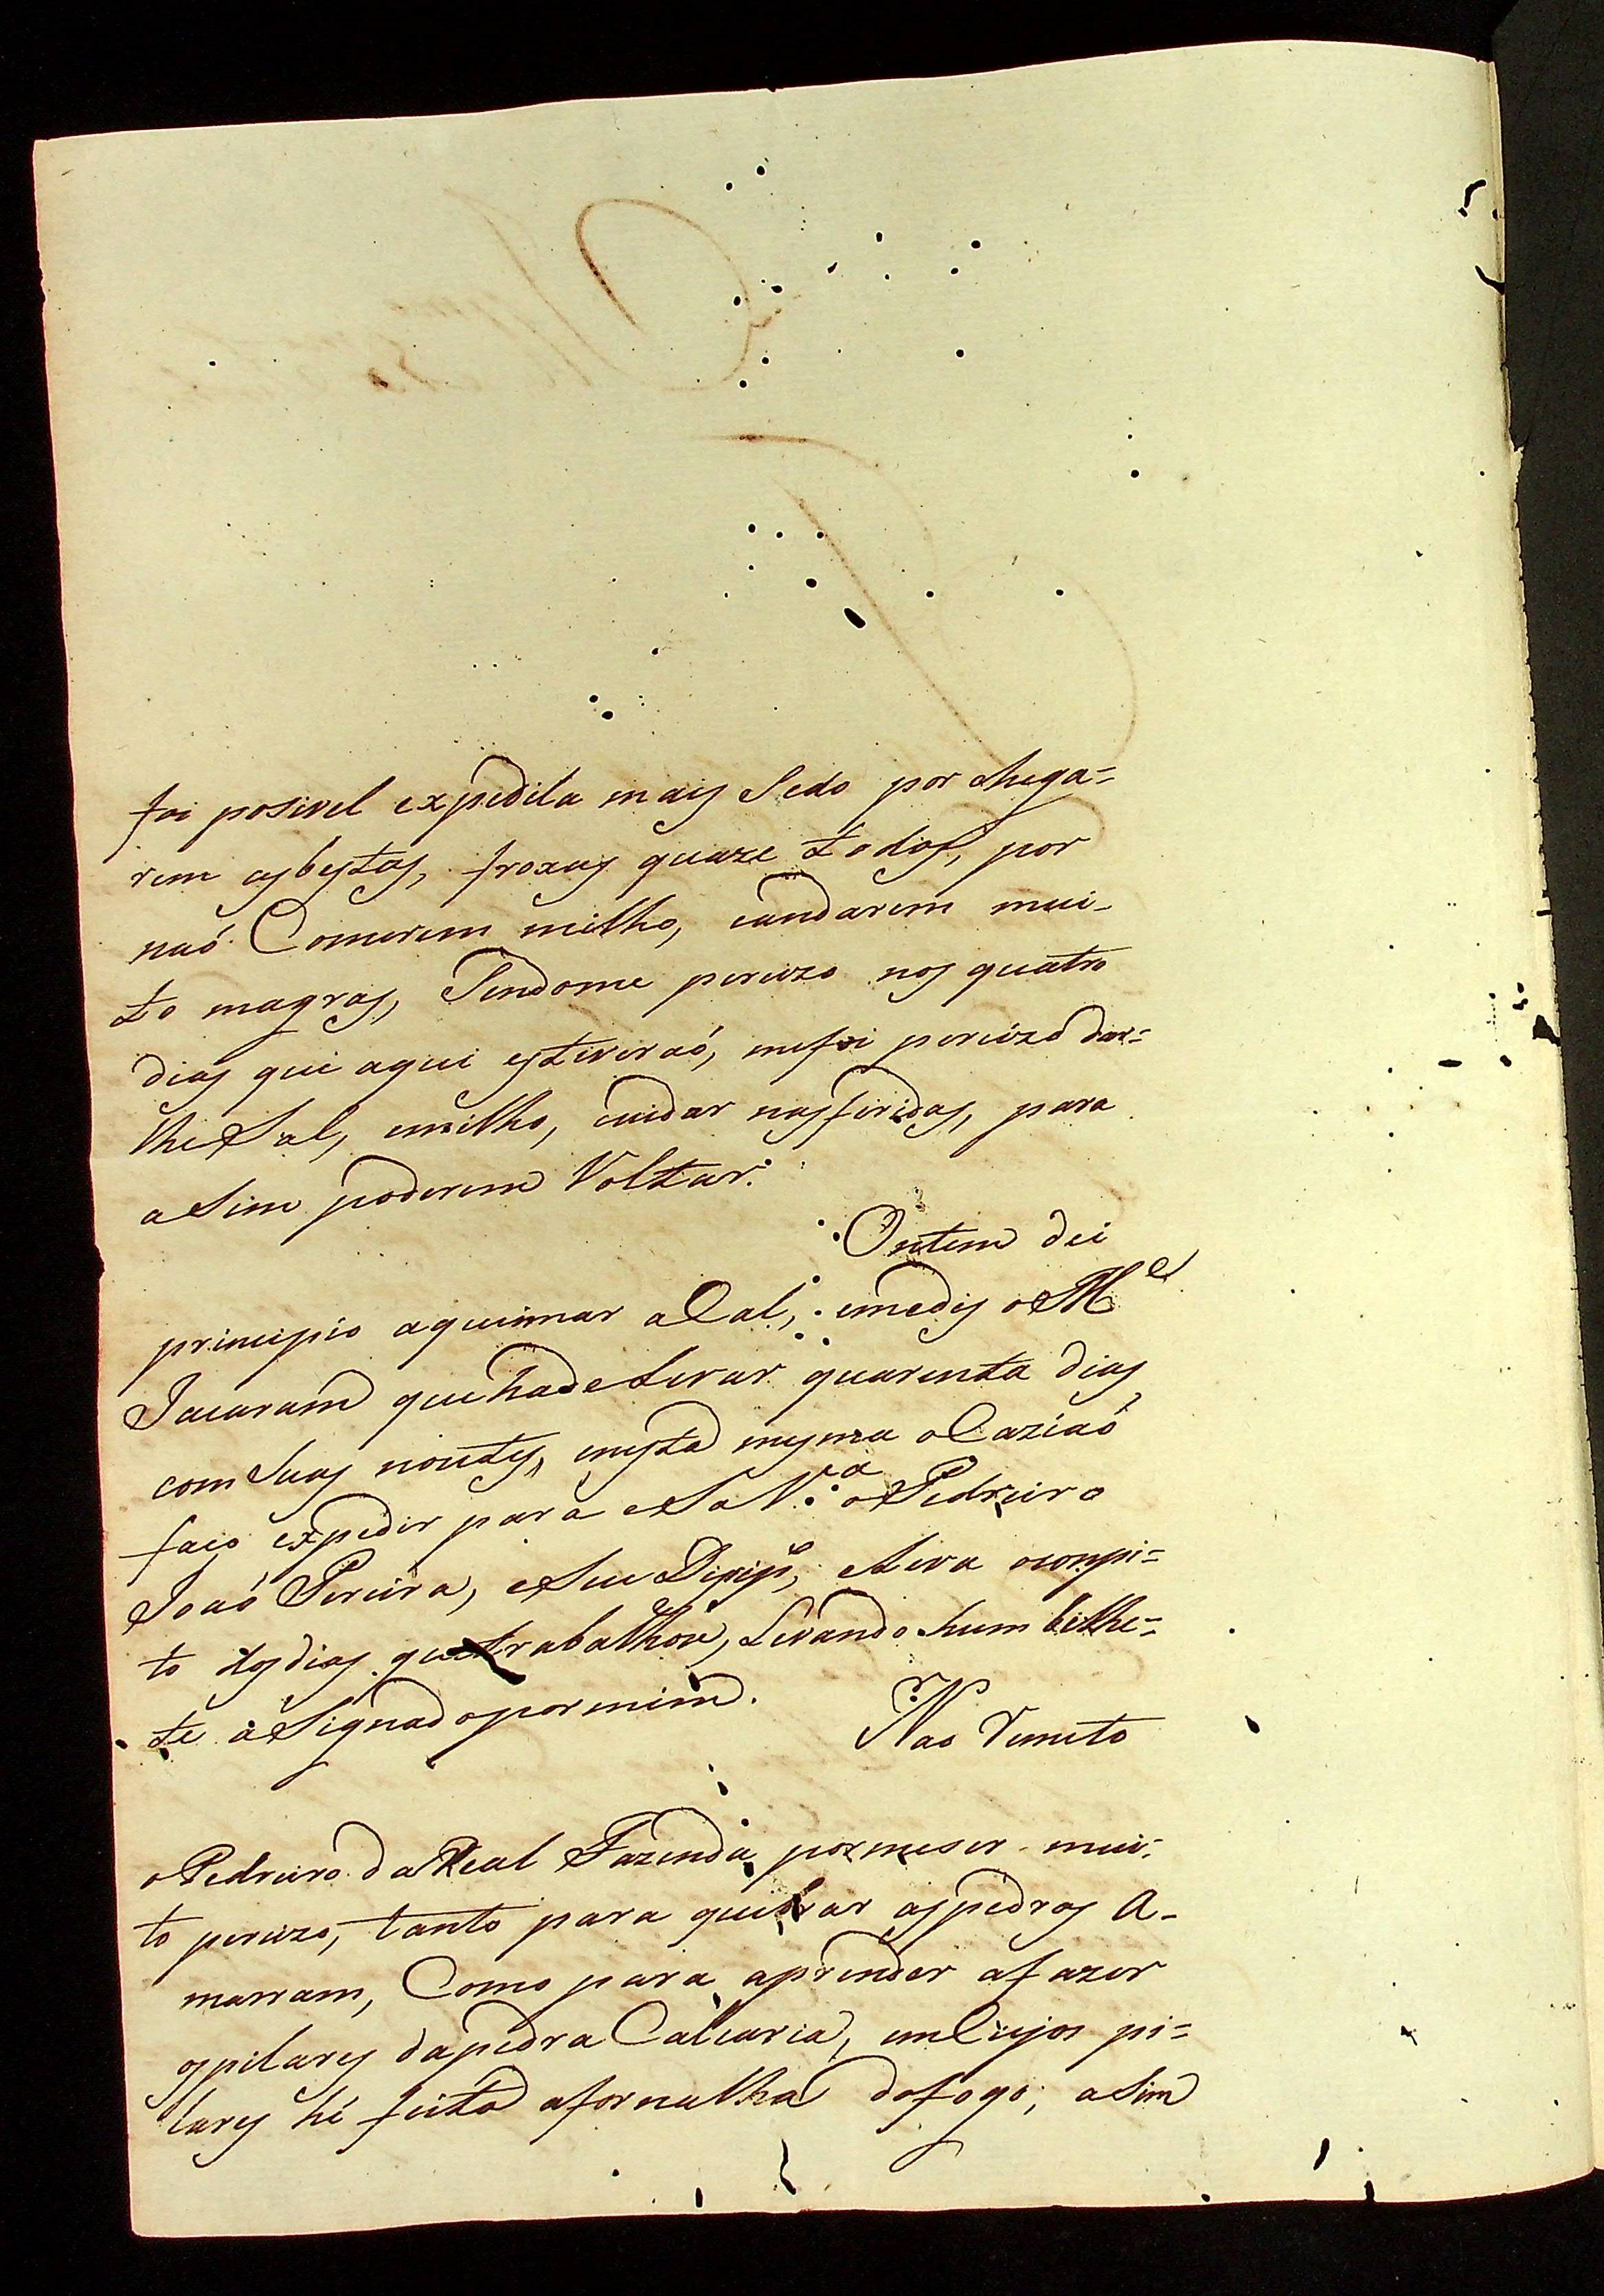 foi posivel expedila mais Sedo por chega=
rem asbestas, froxas quaze todas, por
naó Comerem milho, eandarem mui-
to magras, Sendome percizo nos quatro
dias que aqui estiveraó, mefoi percizo dar=
lheSal, emilho, cuidar nasfiridas, para
aSim poderem Voltar.
Ontem dei
principio aqueimar aCal, emediz o M.e
Jacaram quehadeLevar quarenta dias
comSuas noutes, enesta mesma oCaziaó
faço expedir para eSaV.a oPedreiro
Joaó Pereira, eSeu, eLeva oconpi=
to dosdias quetrabalhou, Levando hum bilhe=
te aSignadopormim.
Nao Remeto
oPedreiro daReal Fazenda pormeser mui-
to percizo, tanto para quebrar aspedras A-
marram, Como para aprender afazer
ospilares dapedra Calcaria, emCujos pi=
lares hé feita afornalha dofogo; aSim